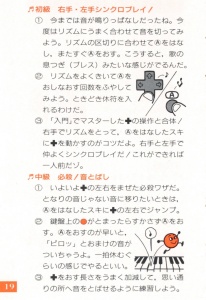 ♬初級 右手・左手シンクロプレイ!
① 今までは音が鳴りっぱなしだったね。今
度はリズムにうまく合わせて音を切ってみ
よう。リズムの区切りに合わせてⒶをはな
し、またすぐⒶをおす。こうすると、歌の
息つぎ(ブレス)みたいな感じがでるんだ。
② リズムをよくきいてⒶを
おしなおす回数をふやして
みよう。ときどき休符を入
れるわけだ。
③ 「入門」でマスターした✚の操作と合体!
右手でリズムをとって、Ⓐをはなしたスキ
に✚を動かすのがコツだよ。右手と左手で
仲よくシンクロプレイだ!これができれば
一人前だゾ。
♬中級 必殺!音とばし
① いよいよ✚の左右をまぜた必殺ワザだ。
となりの音じゃない音に移りたいときは、
Ⓐをはなしたスキに✚の左右でジャンプ。
② 鍵盤上の●がとまったらすかさずⒶをお
す。Ⓐをおすのが早いと、
「ピロッ」とおまけの音が
ついちゃうよ。一拍休むく
らいの感じでやるといい。
③ ✚をおす長さをうまく加減して、思い通
りの所へ音をとばせるように練習しよう。
19